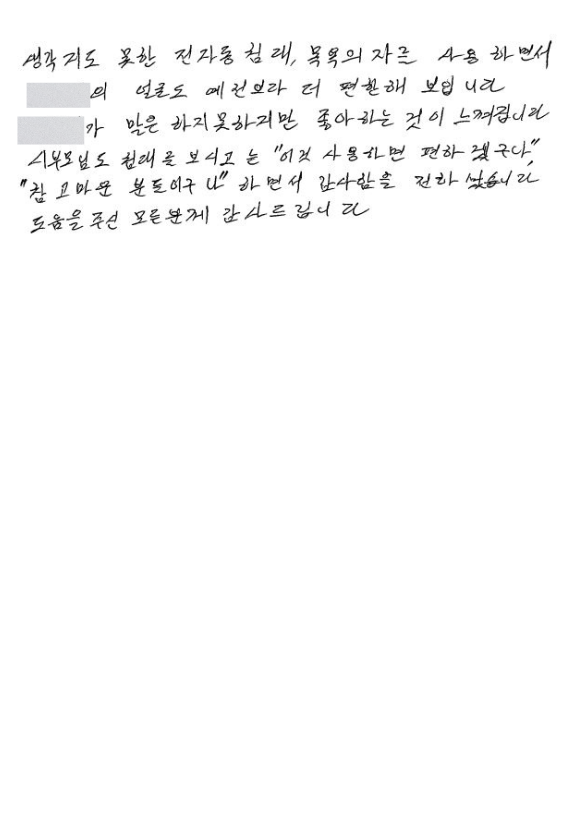 생각지도 못한 전자동침대, 목욕의자를 사용하면서
의 얼굴도 예전보다 더 편안해 보입니다
가 말은 하지못하지만 좋아하는 것이 느껴집니다
시부모님도 침대를 보시고는 "이것 사용하면 편하겠구나"
"참 고마운 분들이구나" 하면서 감사함을 전하셨습니다
도움을주신 모든분께 감사드립니다